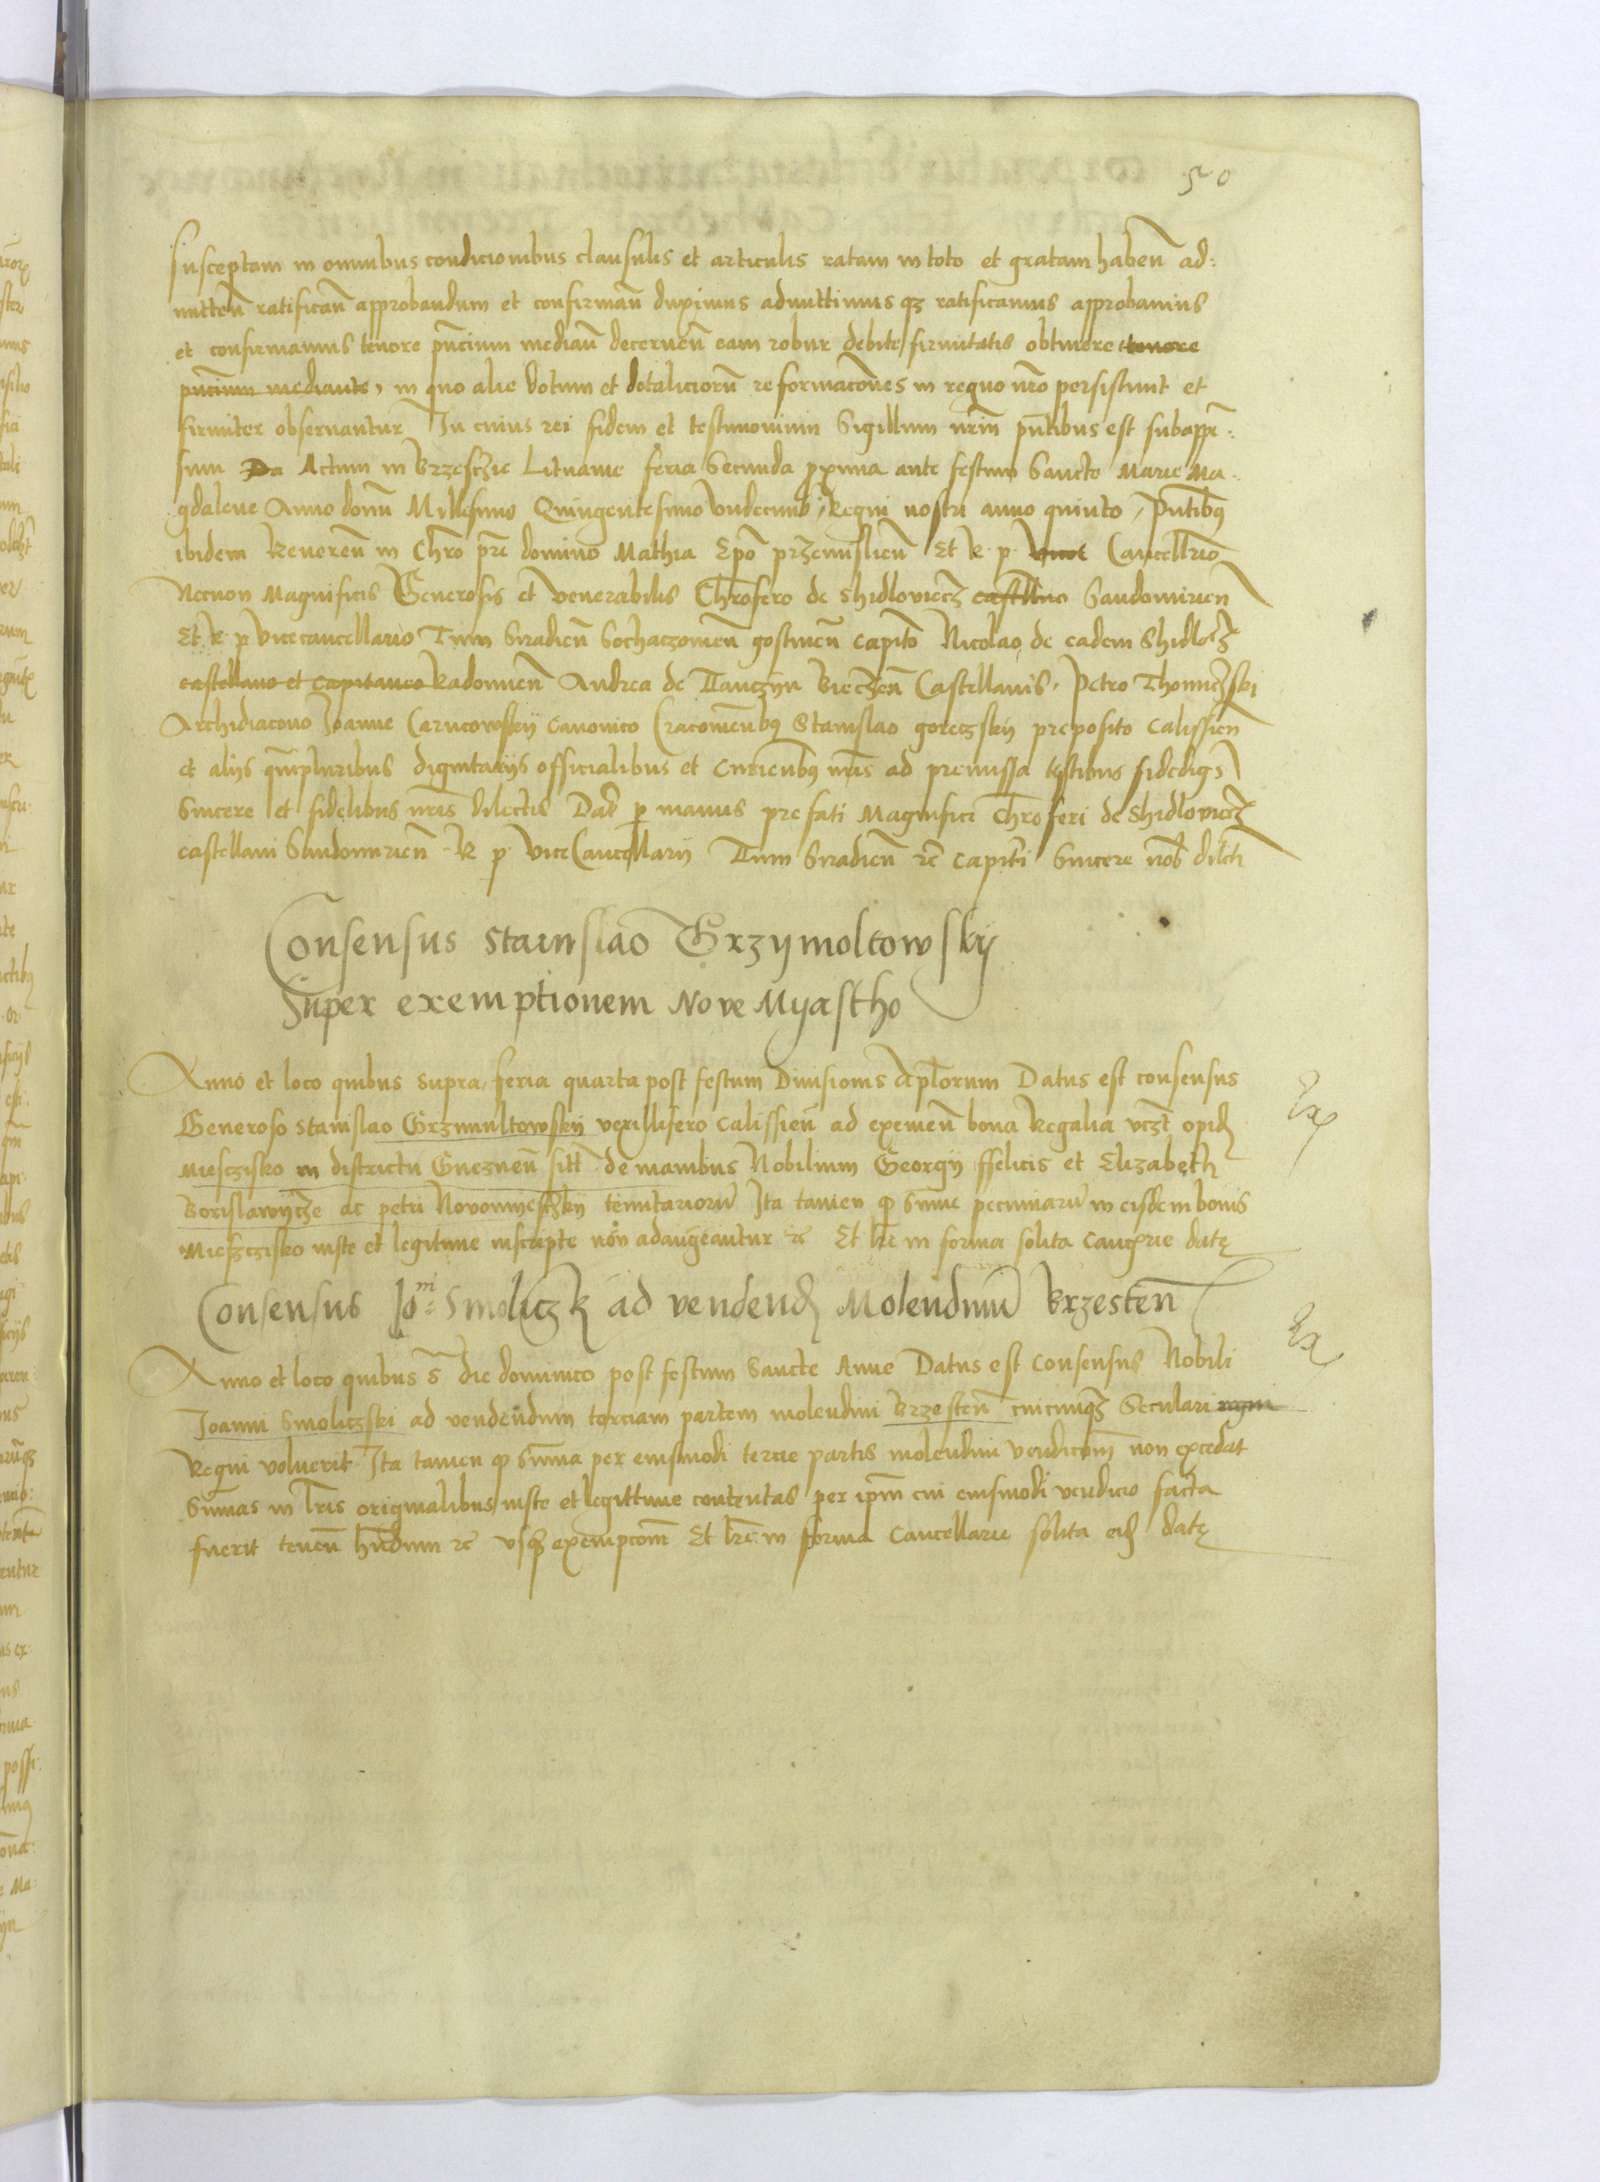 50
susceptam in omnibus condicionibus clausulis et articulis ratam in toto et gratam habeñ ad:
mitteñ ratificañ approbandum et confirmañ duximus admittimus qȝ ratificamus approbamus
et confirmamus tenore pñcium mediañ decerneñ eam robur debite firmitatis obtinere tenore
pñcium mediante, in quo alie dotum et dotaliciorũ reformacões in regno nr̃o persistunt et
firmiter observantur In cuius rei fidem et testimonium Sigillum nr̃m pñtibus est subappr̃:
sum Da Actum in Brzesczie Lituanie feria Secunda proxima ante festum Sancte Marie Ma-
gdalene Anno domĩ Millesimo Quingentesimo Undecimo, Regni nostri anno quinto, Pñtibꝫ
ibidem Reverẽn in Chro pr̃e domino Mathia Epõ przemislieñ Et R. p. Vicec Cancellr̃io
Necnon Magnificis Generosis et venerabilis Chrofero de Shidloviecz castellno Sandomirieñ
Et R. p. Vicecancellario Tum Siradieñ Sochaczovieñ gostineñ capitõ Nicolao de eadem Shidlocȝ
castellano et capitaneo Radomieñ Andrea de Tanczyn Bieczeñ Castellanis. Petro Thomiczski
Archidiacono Joanne Carncowskij canonico Cracovieñbꝫ Stanislao goreczskij preposito calissieñ
et alijs qm̃pluribus dignitarijs officialibus et Curieñbꝫ nr̃is ad premissa testibus fidedigs
Sincere et fidelibus nr̃is dilectis Dat̃ p manus prefati Magnifici Chroferi de Shidloviecz
castellani Sandomirieñ R p ViceCancellarij Tum Siradieñ ꝛc̃ capit̃i Sincere nob̃ dilcti
Consensus Stanislao Grzijmoltowskij
Super exemptionem Nove Myastho
Anno et loco quibus supra, feria quarta post festum Divisionis Apl̃orum Datus est consensus
Generoso Stanislao Grzimultowskij vexillifero Calissieñ ad exemeñ bona Regalia vczt opid
Miesczisko in districtu Gnezneñ sitt̃ de manibus Nobilium Georgij ffelicis et Elizabeth
Borislawycze ac petri Novomyesczkij tenutariorũ Ita tamen qꝫ sum̃e pecuniarũ in eisdem bonis
Miesczisko iuste et legitime inscripte non adaugeantur ꝛc Et lr̃e in forma solita Cancrie date
Consensus Joni Smoliczk ad vendend Molendinũ Brzesteñ
Anno et loco quibus s̃ die dominico post festum Sancte Anne Datus est Consensus Nobili
Joanni Smoliczski ad vendendum terciam partem molendini Brzesteñ cuicunqꝫ Seculari regni
Regni voluerit Ita tamen qꝫ sum̃a per eiusmodi tercie partis molendini vendicõem non excedat
Sum̃as in lr̃is originalibus iuste et legittime contentas per ipm̃ cui eiusmodi vendicio facta
fuerit teneñ hñdum ꝛc usqꝫ exempcõem Et lr̃e in forma Cancellarie solita eid date
Ex
Ex